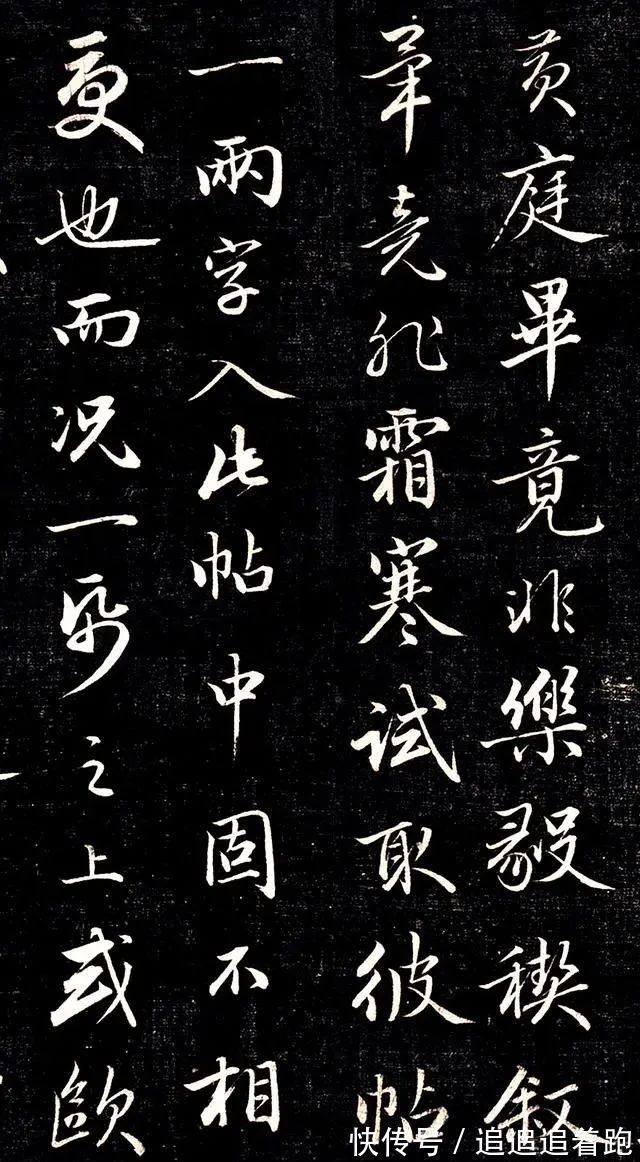 黄庭畢竟非樂毅禊叙
畢竟非霜寒試取彼帖
一兩字入此帖中固不相
也而况一帋之上或歐
快传号 / 追追追着跑